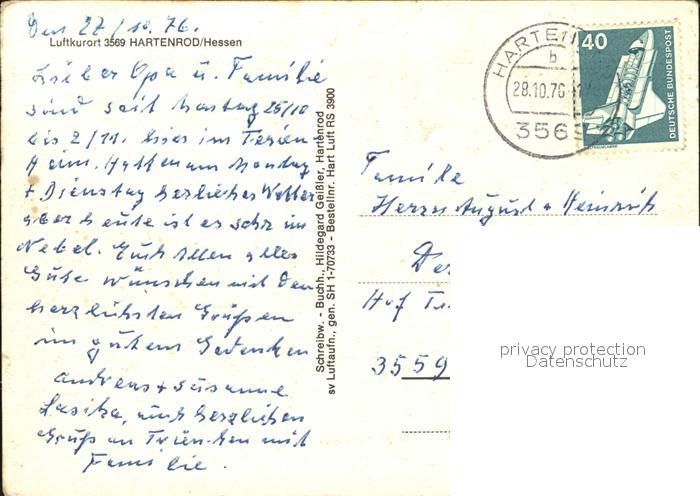 Den 27/10.76.
Luftkurort 3569 HARTENROD/Hessen
Lieber Opa u. Familie
sind seit Montag 25/10
bis 2/11. hier im Ferien
Heim. Hatten am Montag
+ Dienstag herrliches Wetter
aber heute ist es sehr im
Nebel. Euch allen alles
Gute wünschen mit den
herzlichsten Grüßen
im gutem Gedenken
Andreas + Susanne
herzlichen
Gruß an mit
Familie.
Schreibw. - Buchh., Hildegard Geißler, Hartenrod
sv Luftaufn., gen. SH 1-70733 - Bestellnr. Hart Luft RS 3900
HARTEN
b
28.10.76
3569
40
DEUTSCHE BUNDESPOST
Familie
Herrn August + Heinrich
Hof
3559
privacy protection
Datenschutz